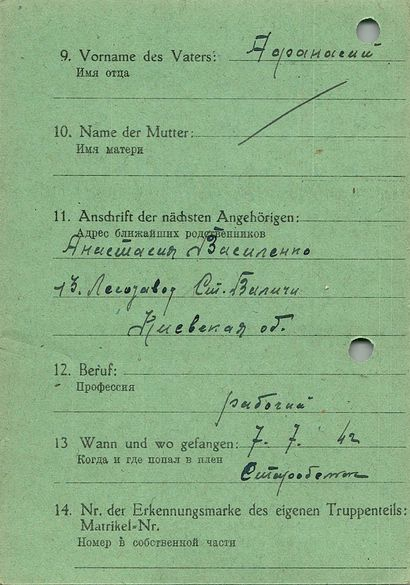 9. Vorname des Vaters: Афанасий
Имя отца
10. Name der Mutter:
Имя матери
11. Anschrift der nächsten Angehörigen:
Адрес ближайших родственников
Анастасия Василенко
13. Лесозавод Ст. Баличи
Киевская об.
12. Beruf:
Профессия
рабочий
13 Wann und wo gefangen: 7. 7. 42
Когда и где попал в плен
14. Nr. der Erkennungsmarke des eigenen Truppenteils:
Matrikel-Nr.
Номер в собственной части